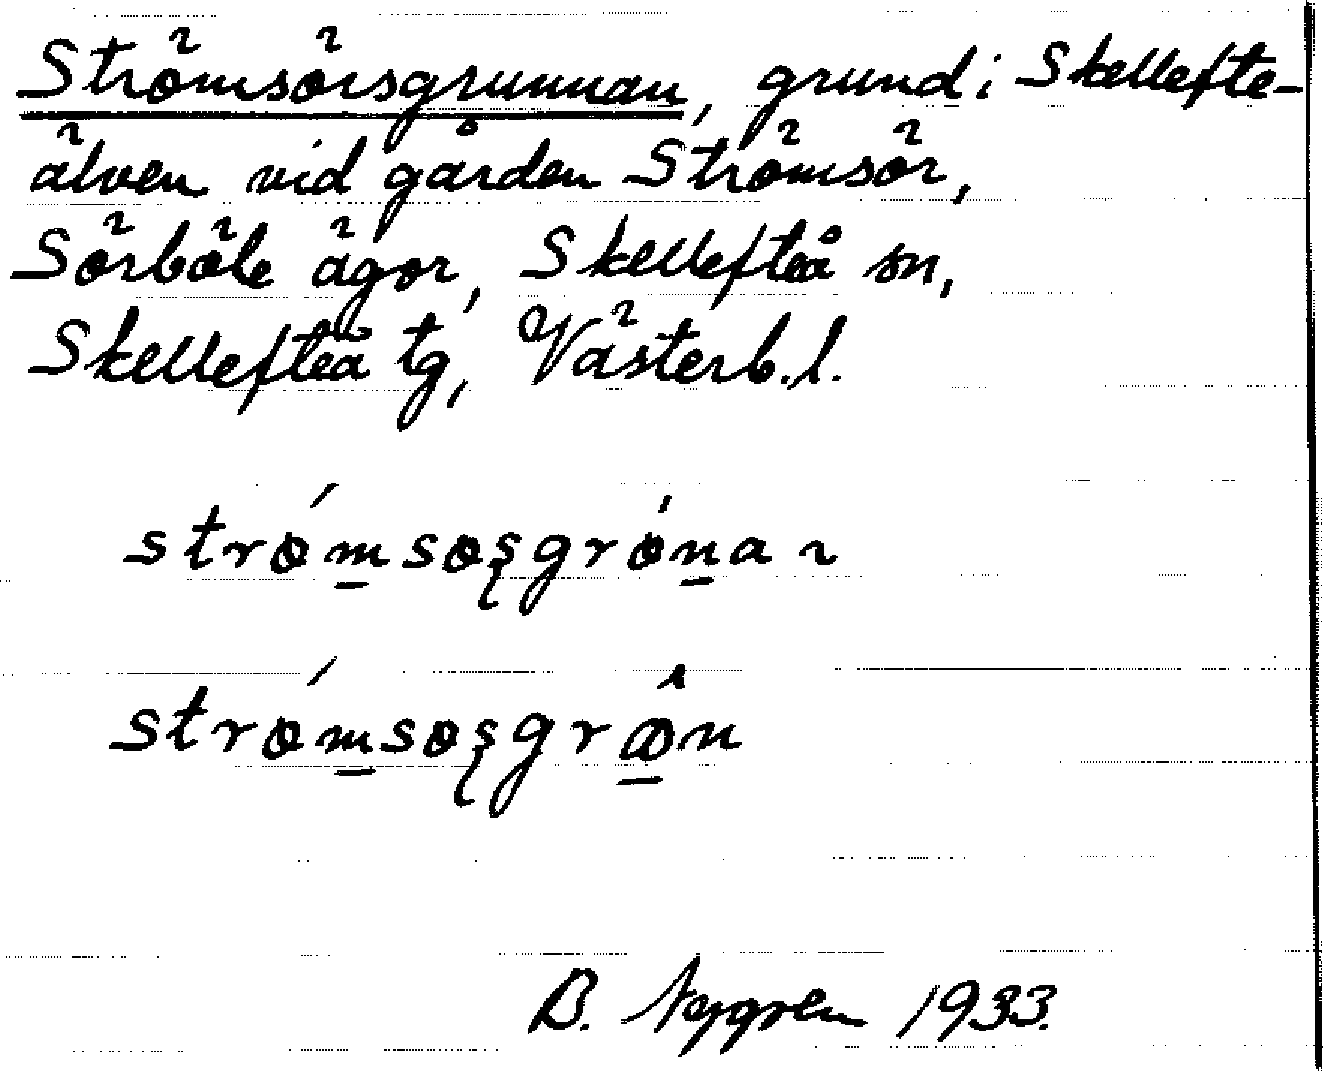 Strömsörsgrunnan, grund i Skellefte-
älven vid gården Strömsör,
Sörböle ägor, Skellefteå sn,
Skellefteå tg, Västerb.l.
strǿmsøşgrónar
strǿmsøşgrøn
B. Nygren 1933.